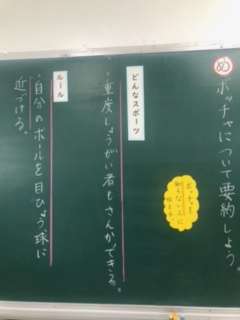 め ボッチャについて要約しよう。
ボッチャを
知らない人に
伝える
どんなスポーツ
・重度しょうがい者もさんかできる。
ルール
・自分のボールを目ひょう球に
近づける。